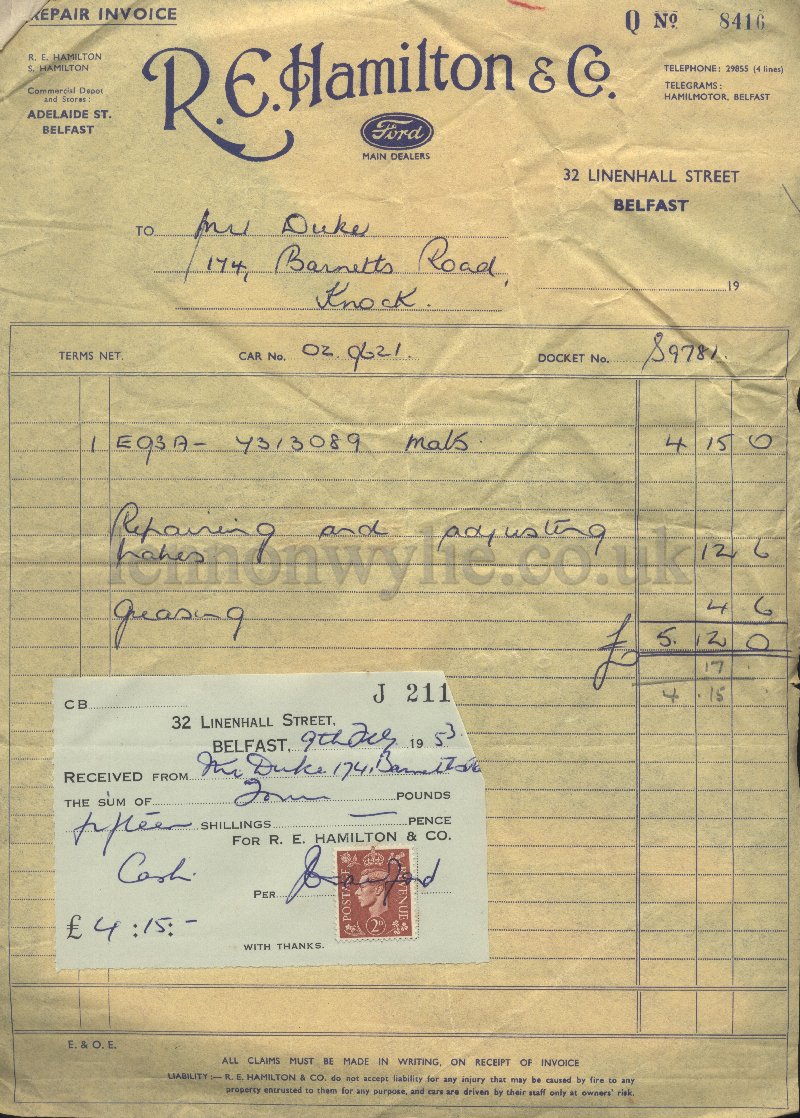 REPAIR INVOICE
Q No. 8416
R. E. HAMILTON
S. HAMILTON
Commercial Depot
and Stores:
ADELAIDE ST.
BELFAST
R.E. Hamilton & Co.
Ford
MAIN DEALERS
TELEPHONE: 29855 (4 lines)
TELEGRAMS:
HAMILMOTOR, BELFAST
32 LINENHALL STREET
BELFAST
TO Mr Duke
174, Barnetts Road,
Knock.
19
TERMS NET. CAR No. OZ 9621. DOCKET No. S9781.
1 E93A- 7313089 mats. 4 15 0
Repairing and adjusting
brakes 12 6
greasing 4 6
£ 5. 12 0
17 .
4 . 15 .
lennonwylie.co.uk
CB J 211
32 LINENHALL STREET,
BELFAST, 9th 1953
RECEIVED FROM Mr Duke 174, Barnetts
THE SUM OF Four POUNDS
fifteen SHILLINGS — PENCE
FOR R. E. HAMILTON & CO.
Cash
PER
POSTAGE REVENUE
2D
£ 4 : 15 : -
WITH THANKS.
E. & O. E.
ALL CLAIMS MUST BE MADE IN WRITING, ON RECEIPT OF INVOICE
LIABILITY:— R. E. HAMILTON & CO. do not accept liability for any injury that may be caused by fire to any
property entrusted to them for any purpose, and cars are driven by their staff only at owners' risk.